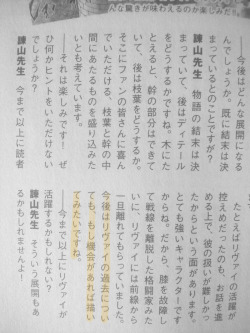 んな驚きが味わえるのか楽しみだ!!
――今後はどんな展開になる
んでしょうか。既に結末は決
まっているとのことですが?
諫山先生　物語の結末は決
まっていて、後はディテール
をどうするかですね。木にた
とえると、幹の部分はできて
いて、後は枝葉をどうするか。
そこにファンの皆さんに喜ん
でいただける、枝葉と幹の中
間にあたるものを盛り込みた
いとも考えています。
――それは楽しみです!　ぜ
ひ何かヒントをいただけない
でしょうか?
諫山先生　今まで以上に読者
たとえばリヴァイの活躍が
控えめだったのも、お話を進
める上で、彼の扱いが難しかっ
たからという面があります。
とても強いキャラクターです
からね。だから、膝を故障し
て戦線を離脱した格闘家みた
いに、リヴァイには前線から
一旦離れてもらっていました。
今後はリヴァイの過去につい
ても、もし機会があれば描い
てみたいですね。
――今まで以上にリヴァイが
活躍するかもしれない?
諫山先生　そういう展開もあ
るかもしれませんよ!